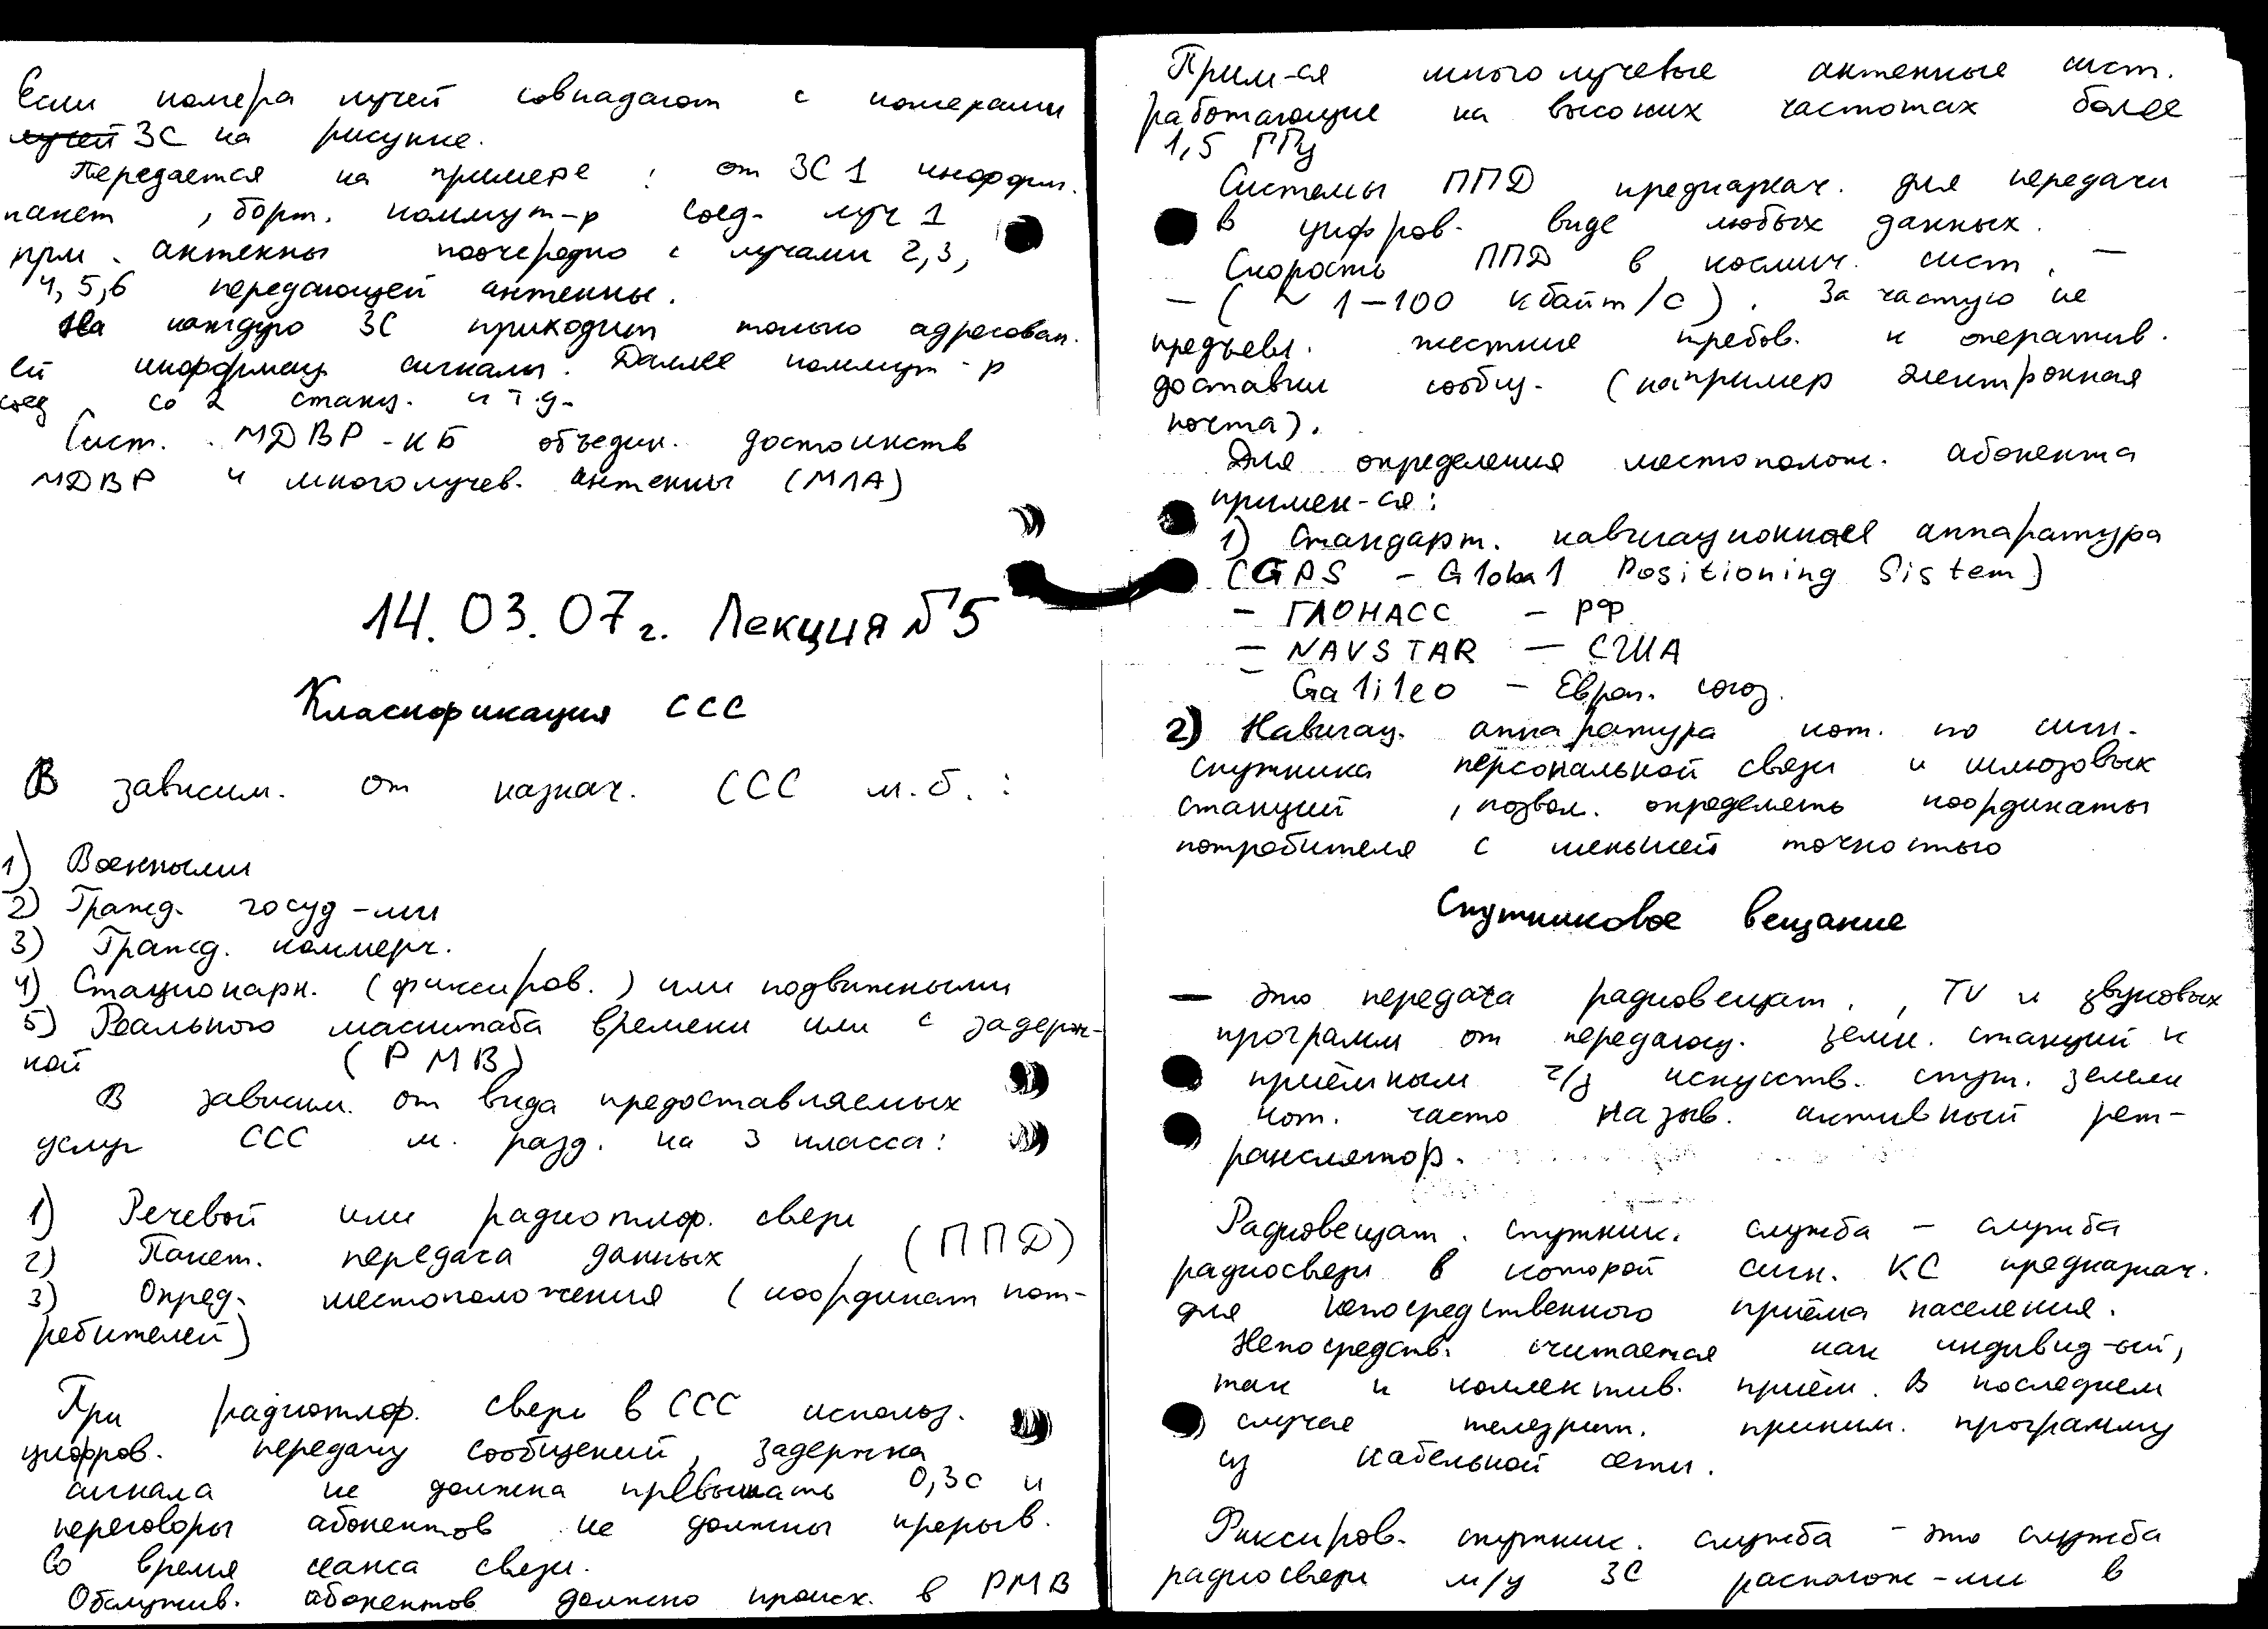 Если номера лучей совпадают с номерами
лучей ЗС на рисунке.
Передается на примере : от ЗС 1 информ.
пакет , борт. коммут-р соед. луч 1
прм. антенны поочередно с лучами 2,3,
4,5,6 передающей антенны.
На каждую ЗС приходит только адресован.
ей информац. сигналы. Далее коммут-р
соед. со 2 станц. и т.д.
Сист. МДВР-КБ объедин. достоинств
МДВР и многолучев. антенны (МЛА)
14.03.07г. Лекция №5
Класиофикация ССС
В зависим. от назнач. ССС м.б. :
1) Военными
2) Гражд. госуд-ми
3) Гражд. коммерч.
4) Стационарн. (фиксиров.) или подвижными
5) Реального масштаба времени или с задерж-
кой (РМВ)
В зависим. от вида предоставляемых
услуг ССС м. разд. на 3 класса:
1) Речевой или радиотлф. связи
2) Пакет. передача данных , (ППД)
3) Опред. местоположения (координат пот-
ребителей)
При радиотлф. связи в ССС использ.
цифров. передачу сообщений, задержка
сигнала не должна превышать 0,3с и
переговоры абонентов не должны прерыв.
во время сеанса связи.
Обслужив. абонентов должно происх. в РМВ
Прим-ся многолучевые антенные сист.
работающие на высоких частотах более
1,5 ГГц
Системы ППД предназнач. для передачи
в цифров. виде любых данных.
Скорость ППД в космич. сист. —
— ( ~ 1–100 кбайт/с ). За частую не
предъявл. жесткие требов. к оператив.
доставки сообщ. (например электронная
почта).
Для определения местополож. абонента
примен-ся:
1) Стандарт. навигационная аппаратура
(GPS – Global Positioning Sistem)
– ГЛОНАСС – РФ
– NAVSTAR – США
– Galileo – Европ. союз.
2) Навигац. аппаратура кот. по сигн.
спутника персональной связи и шлюзовых
станций , позвол. определять координаты
потребителя с меньшей точностью
Спутниковое вещание
— это передача радиовещат. , TV и звуковых
программ от передающ. земн. станций к
приёмным ч/з искусств. спут. земли
кот. часто назыв. активный рет-
ранслятор.
Радиовещат. спутник. служба – служба
радиосвязи в которой сигн. КС предназнач.
для непосредственного приёма населения.
Непосредств. считается как индивид-ый,
так и коллектив. приём. В последнем
случае телезрит. приним. программу
из кабельной сети.
Фиксиров. спутник. служба – это служба
радиосвязи м/у ЗС располож-ми в